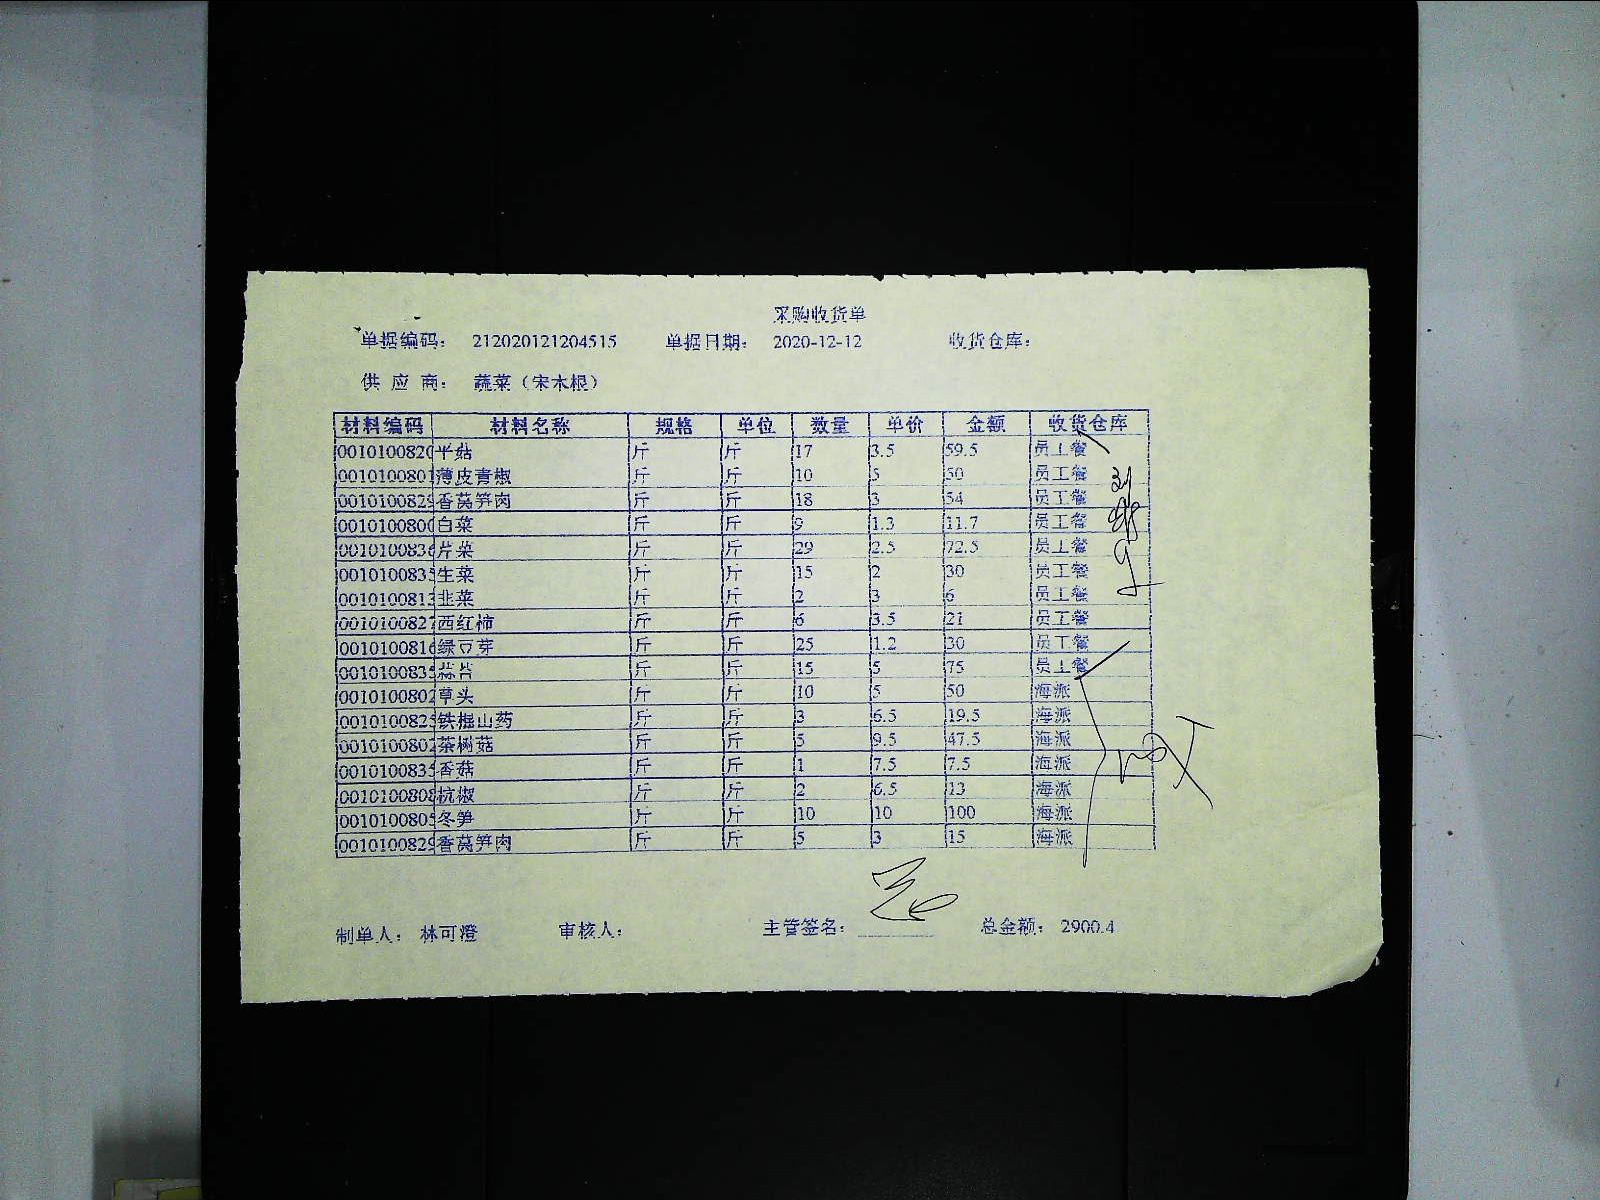 采购收货单
单据编码： 212020121204515 单据日期： 2020-12-12 收货仓库：
供 应 商： 蔬菜（宋木根）
材料编码 材料名称 规格 单位 数量 单价 金额 收货仓库
0010100820 平菇 斤 斤 17 3.5 59.5 员工餐
0010100801 薄皮青椒 斤 斤 10 5 50 员工餐
001010082 香莴笋肉 斤 斤 18 3 54 员工餐
0010100800 白菜 斤 斤 9 1.3 11.7 员工餐
001010083 芹菜 斤 斤 29 2.5 72.5 员工餐
001010083 生菜 斤 斤 15 2 30 员工餐
001010081 韭菜 斤 斤 2 3 6 员工餐
0010100827 西红柿 斤 斤 6 3.5 21 员工餐
001010081 绿豆芽 斤 斤 25 1.2 30 员工餐
001010083 蒜苔 斤 斤 15 5 75 员工餐
0010100802 草头 斤 斤 10 5 50 海派
001010082 铁棍山药 斤 斤 3 6.5 19.5 海派
0010100802 茶树菇 斤 斤 5 9.5 47.5 海派
001010083 香菇 斤 斤 1 7.5 7.5 海派
0010100808 杭椒 斤 斤 2 6.5 13 海派
0010100805 冬笋 斤 斤 10 10 100 海派
001010082 香莴笋肉 斤 斤 5 3 15 海派
制单人： 林可澄 审核人： 主管签名： 总金额： 2900.4